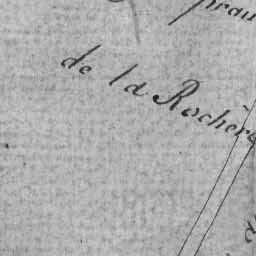 de la Rochère